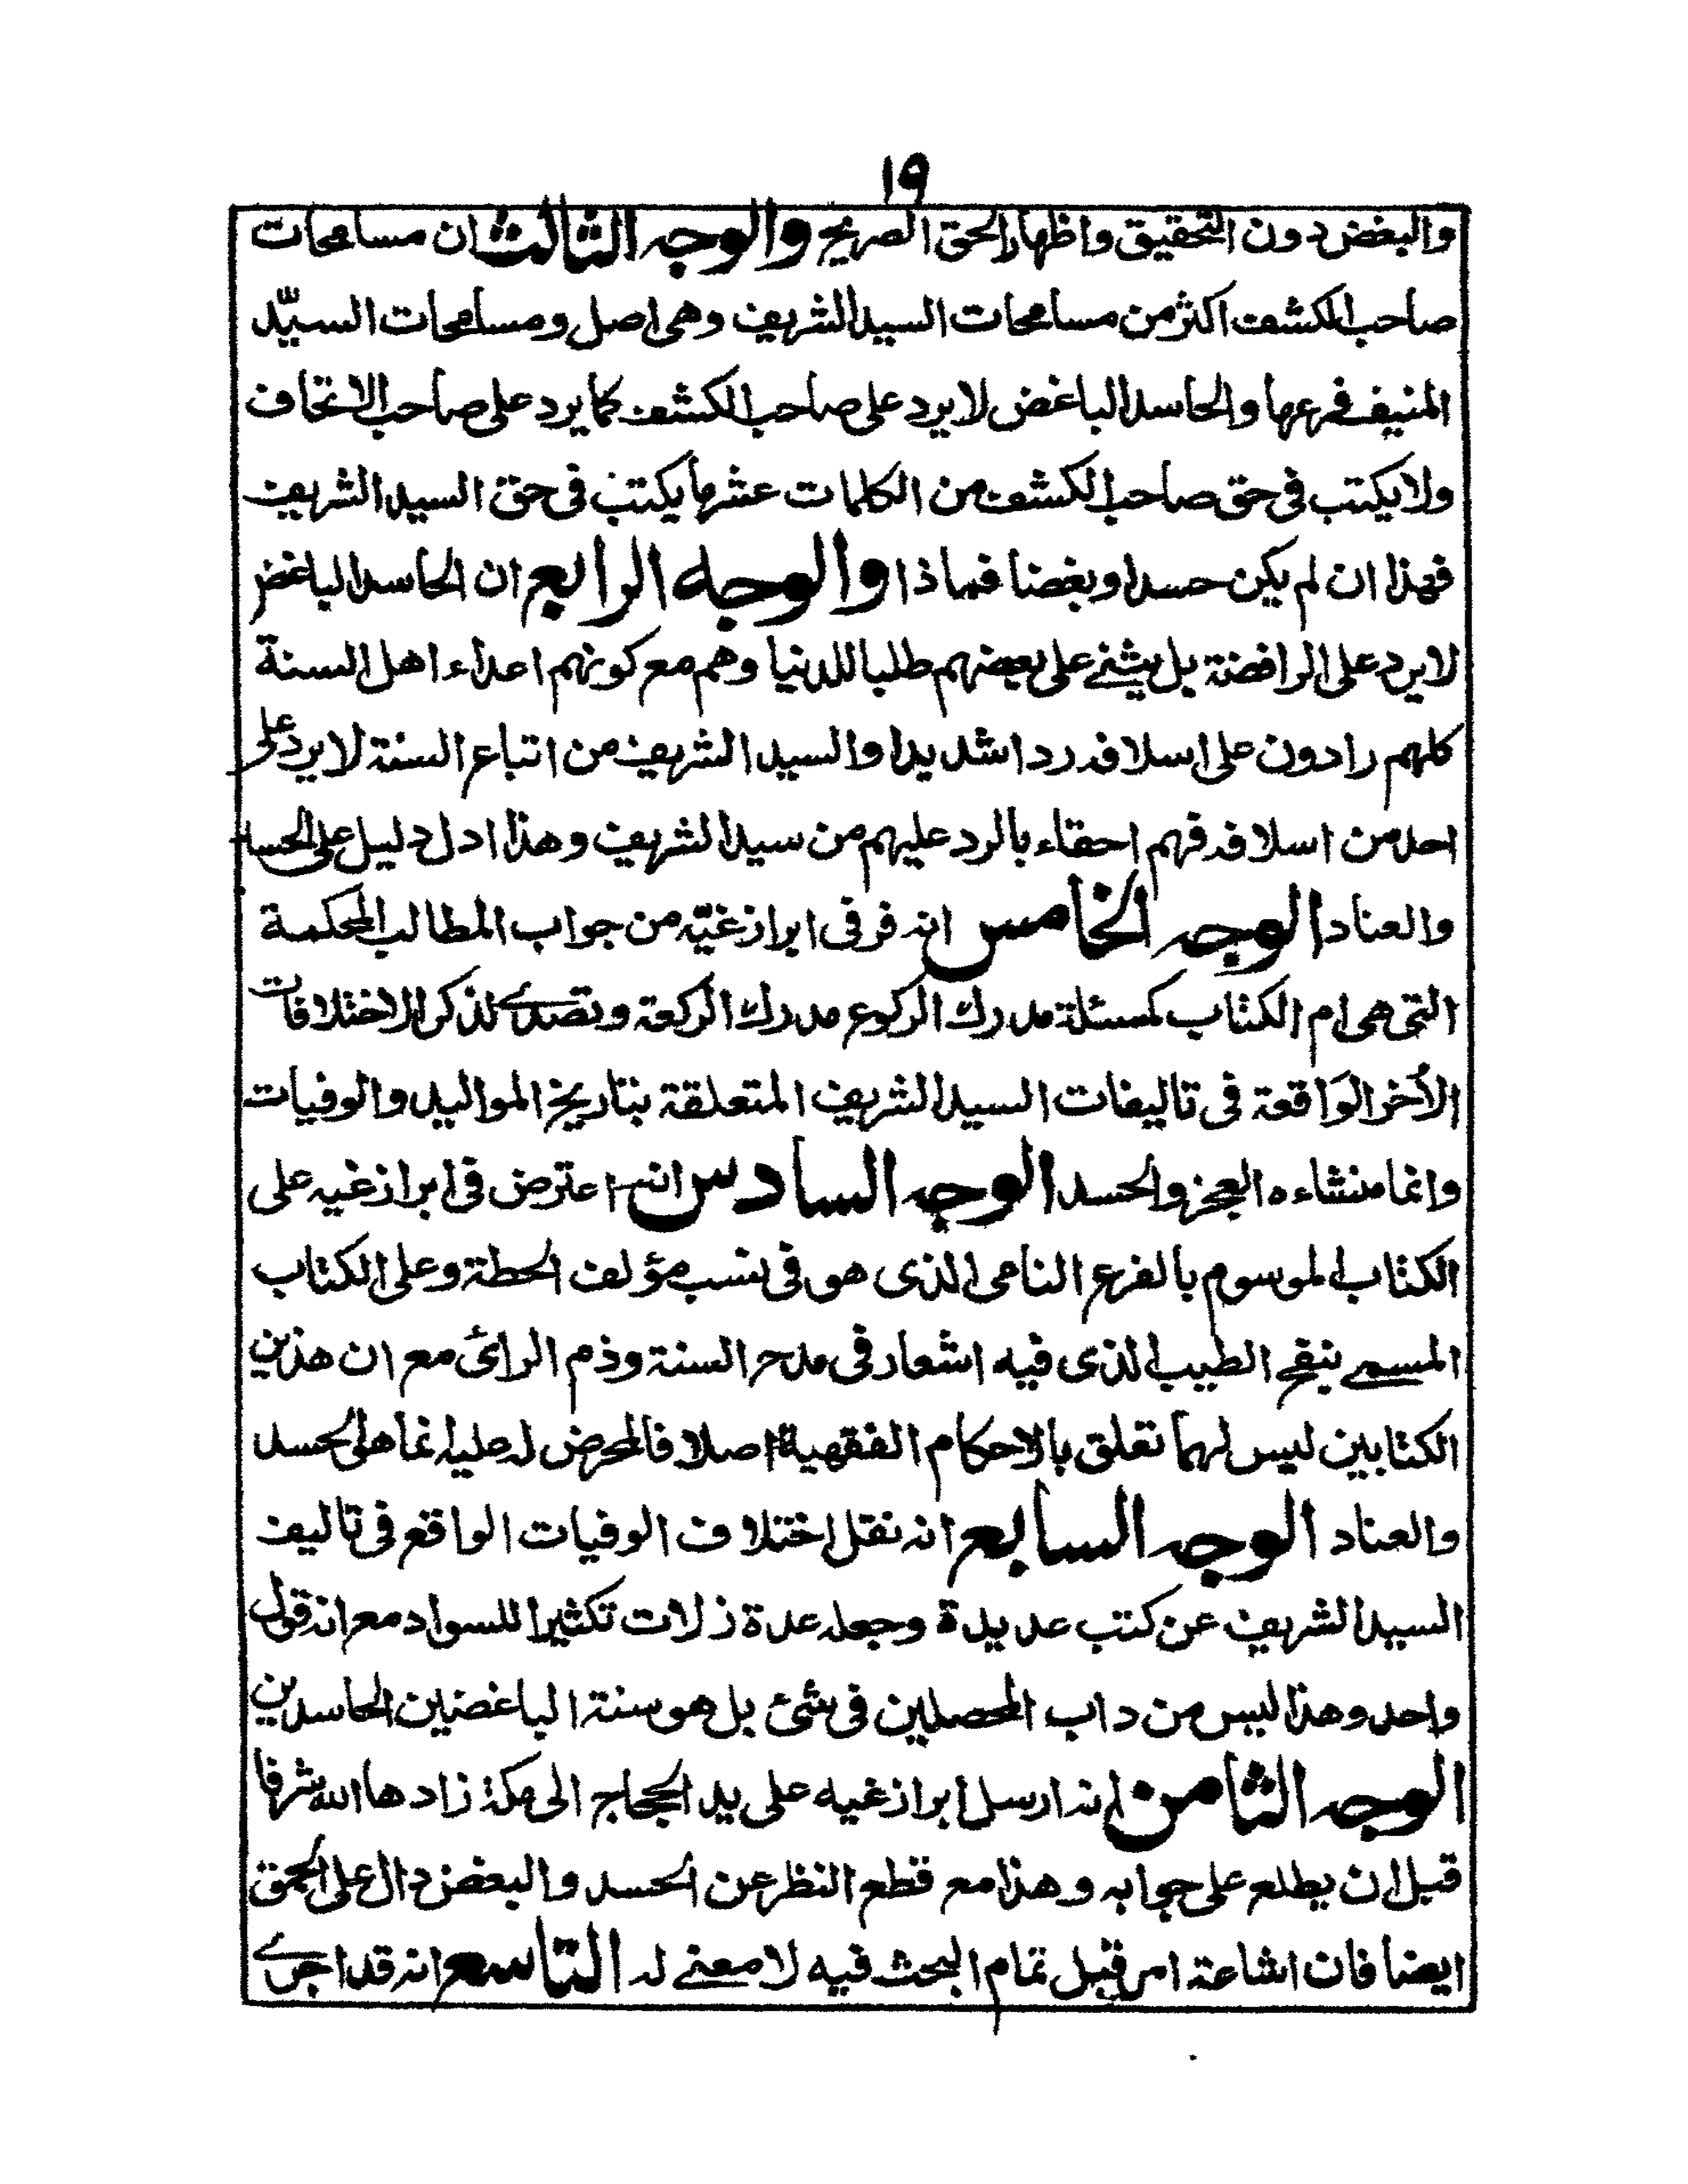 ١٩
والبغض دون التحقيق واظهار الحق الصريح والوجه الثالث ان مسامحات
صاحب الكشف اكثر من مسامحات السيد الشريف وهى اصل ومسامحات السيّد
المنيف فرعها والحاسد الباغض لا يرد على صاحب الكشف كما يرد على صاحب الاتحاف
ولا يكتب فى حق صاحب الكشف من الكلمات عشر ما يكتب فى حق السيد الشريف
فهذا ان لم يكن حسدا وبغضا فماذا والوجه الرابع ان الحاسد الباغض
لا يرد على الرافضة بل يثنے على بعضهم طلبا للدنيا وهم مع كونهم اعداء اهل السنة
كلهم رادون على اسلافه ردا شديدا والسيد الشريف من اتباع السنة لا يرد على
احد من اسلافه فهم احقاء بالرد عليهم من سيد الشريف وهذا ادل دليل على الحسد
والعناد الوجه الخامس انه فر فى ابراز غيّه من جواب المطالب المحكمة
التى هى ام الكتاب كمسئلة مدرك الركوع مدرك الركعة وتصدے لذكر الاختلافات
الأخر الوَاقعة فى تاليفات السيد الشريف المتعلقة بتاريخ المواليد والوفيات
وانما منشاءه العجز والحسد الوجه السادس انه اعترض فى ابراز غيه على
الكتاب الموسوم بالفرع النامى الذى هو فى نسب مؤلف الحطة وعلى الكتاب
المسمے بنفح الطيب الذى فيه اشعار فى مدح السنة وذم الرائ مع ان هذين
الكتابين ليس لهما تعلق بالاحكام الفقهية اصلا فالمحرض له عليه انما هى الحسد
والعناد الوجه السابع انه نقل اختلاف الوفيات الواقع فى تاليف
السيد الشريف عن كتب عديدة وجعله عدة زلات تكثيرا للسواد مع انه قول
واحد وهذا ليس من داب المحصلين فى شئ بل هو سنة الباغضين الحاسدين
الوجه الثامن انه ارسل ابراز غيه على يد الحجاج الى مكة زادها الله شرفا
قبل ان يطلع على جوابه وهذا مع قطع النظر عن الحسد والبغض دال على الحمق
ايضا فان اشاعة امر قبل تمام البحث فيه لا معنے له التاسع انه قد اجرے